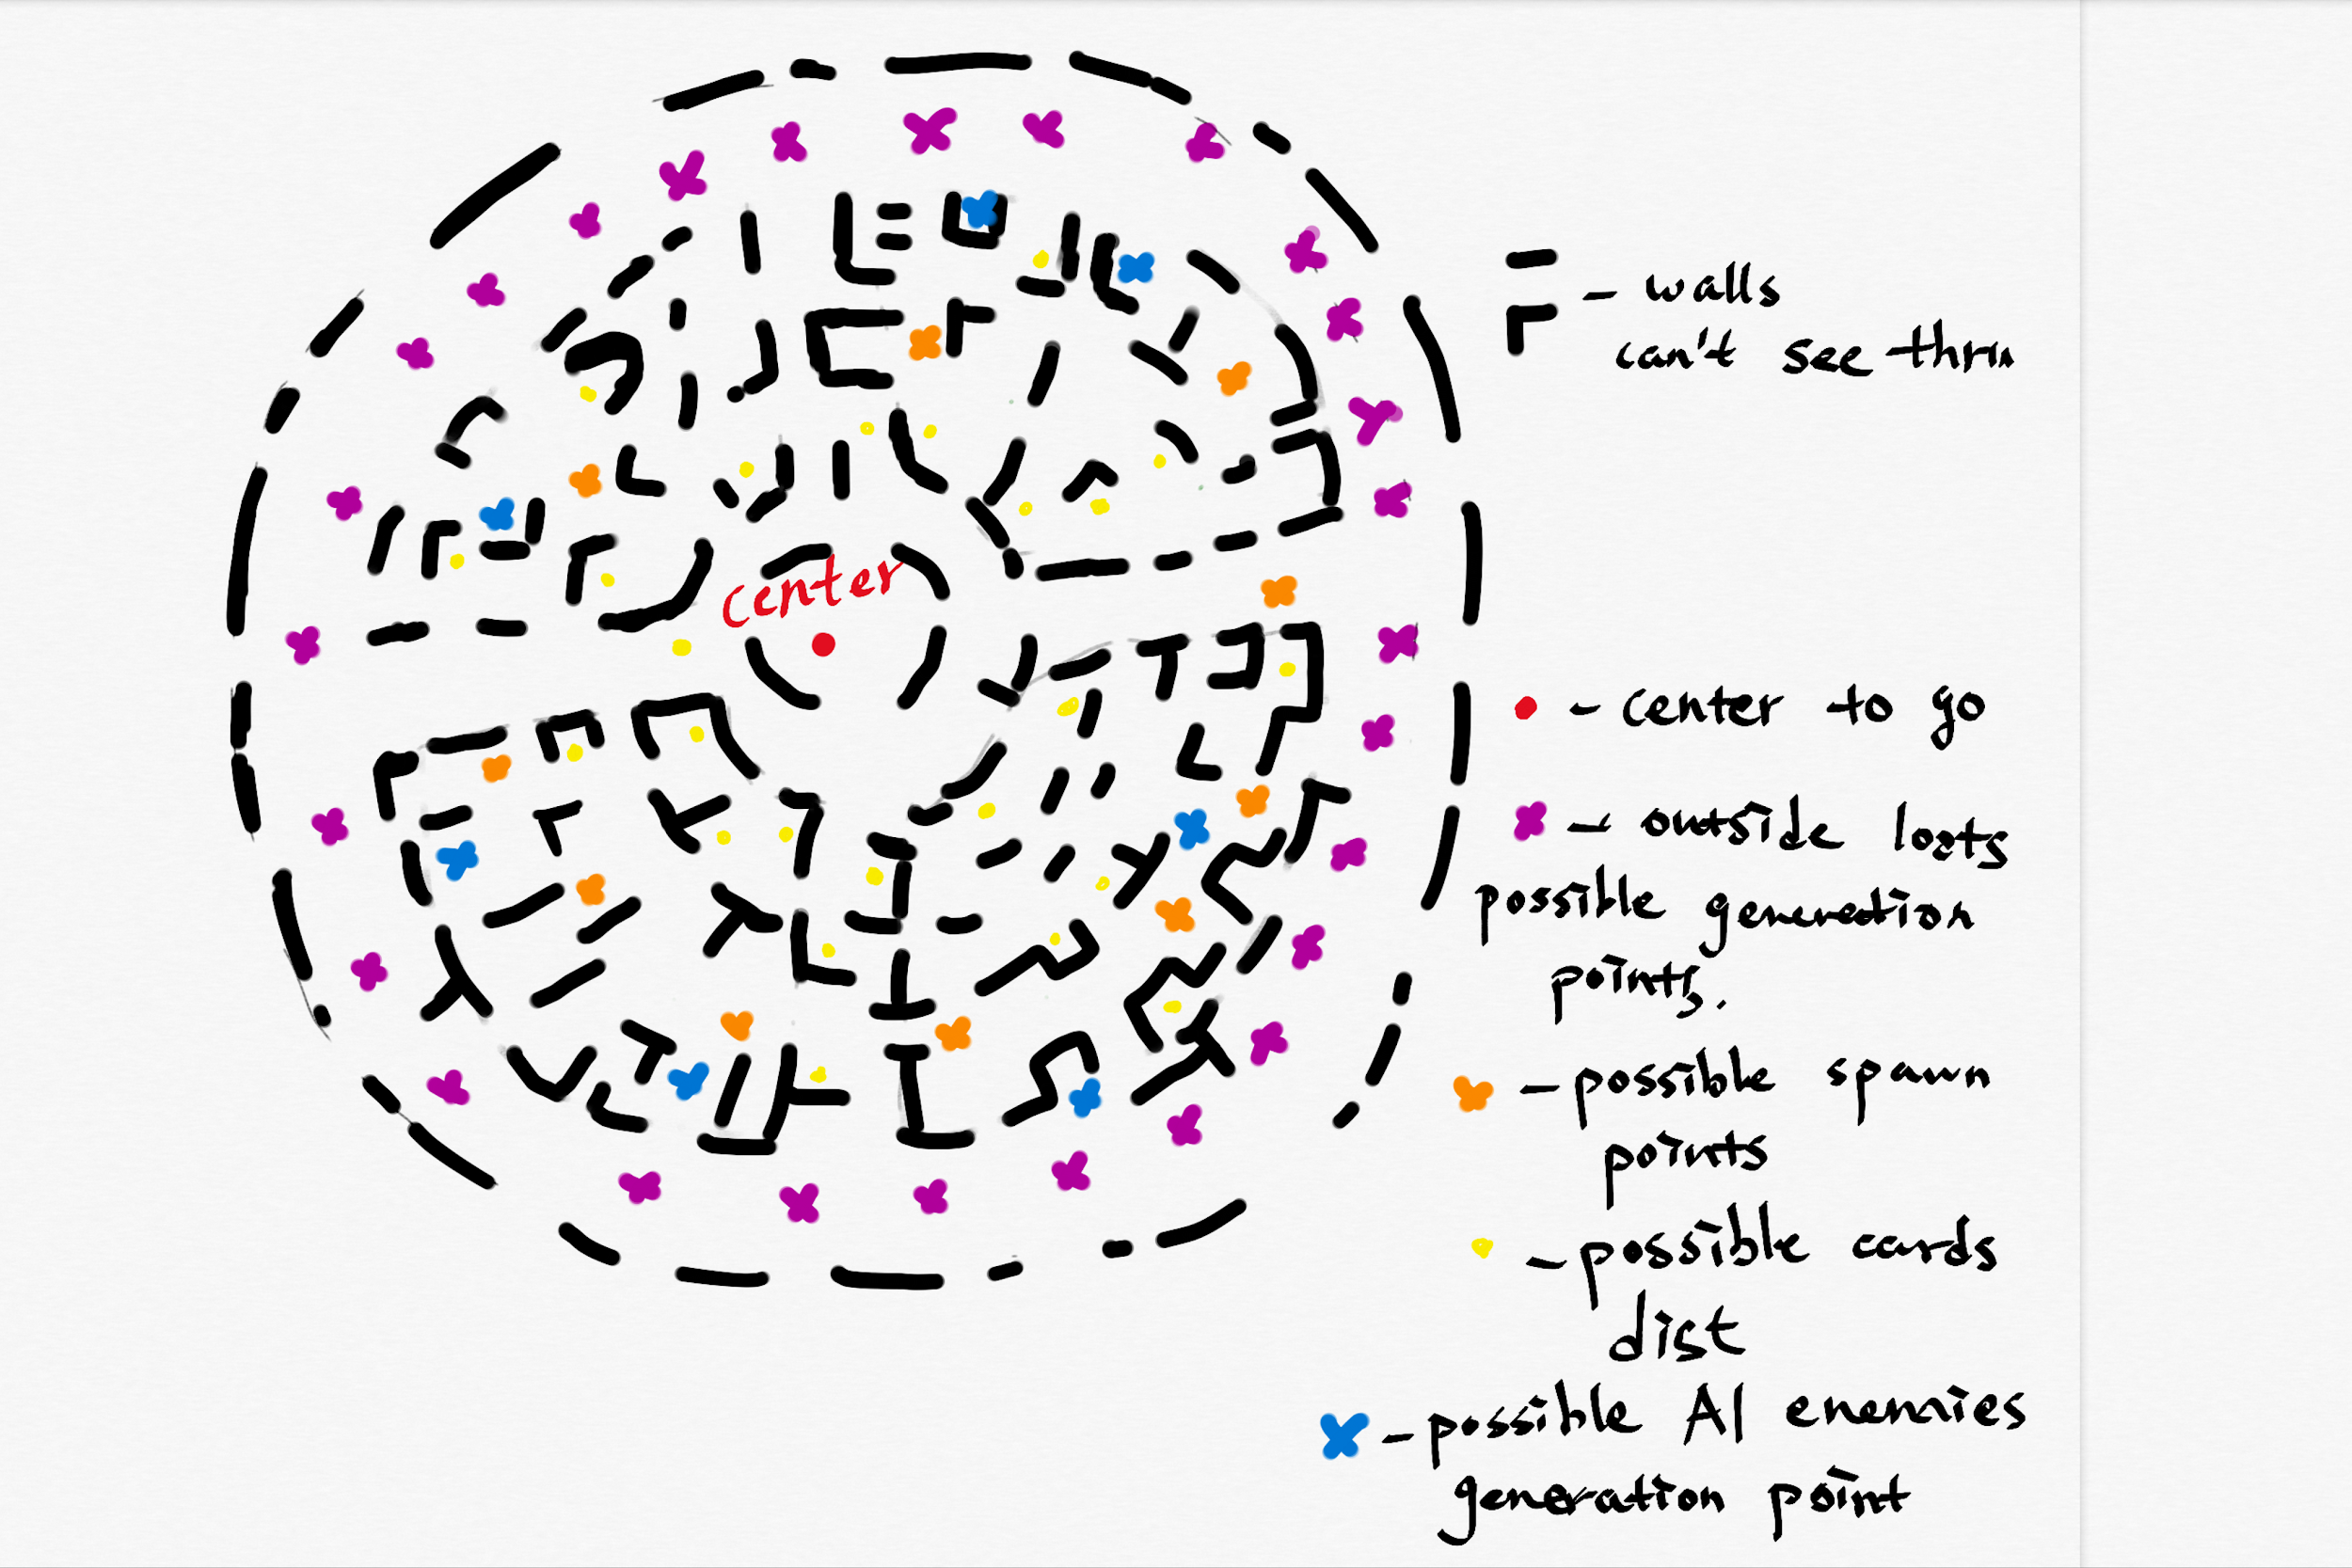 center
- walls
can't see thru
- center to go
- outside loots
possible generation
points.
- possible spawn
points
- possible cards
dist
- possible AI enemies
generation point